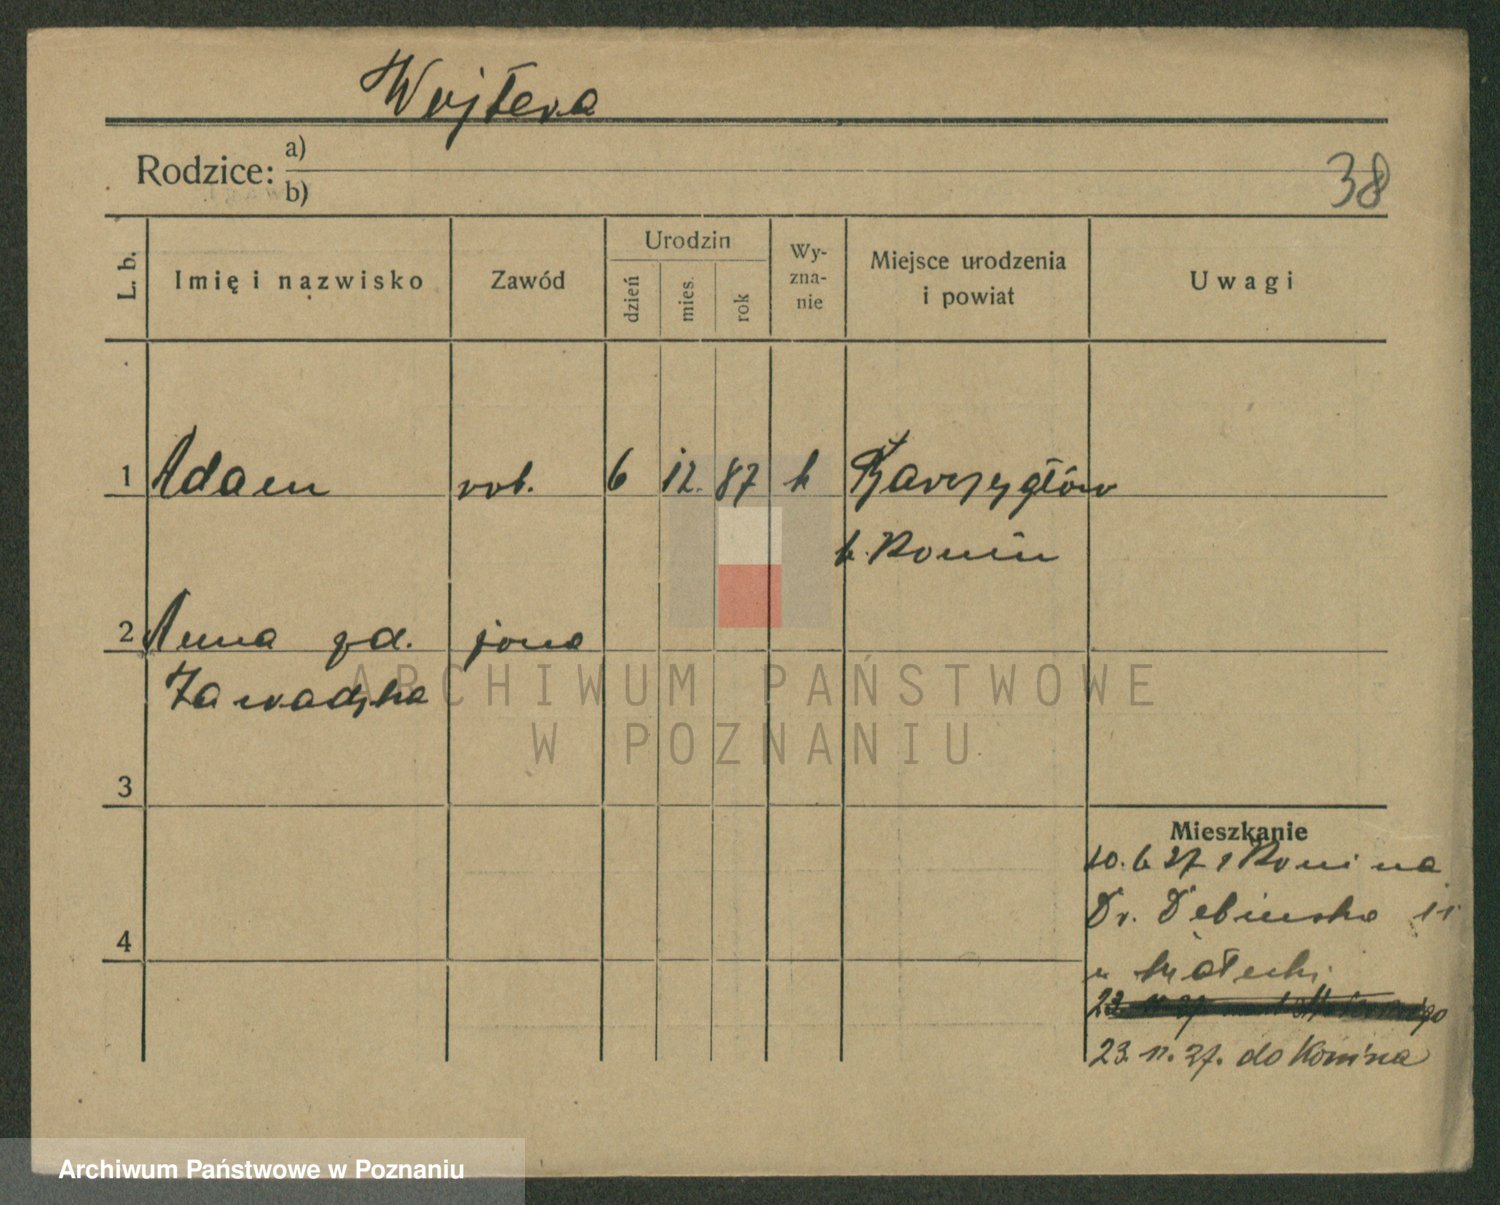 Wojtera
Rodzice: a)
b)
38
L. b. Imię i nazwisko Zawód Urodzin dzień mies. rok Wy-zna-nie Miejsce urodzenia i powiat Uwagi
1 Adam rob. 6 12. 87 k
k. Konin
2 Anna zd. żona
Zawadzka
3
Mieszkanie
10. 6 37 z Konina
Dr. Dębińska 11
4
23. 11. 37. do Konina
ARCHIWUM PAŃSTWOWE
W POZNANIU
Archiwum Państwowe w Poznaniu